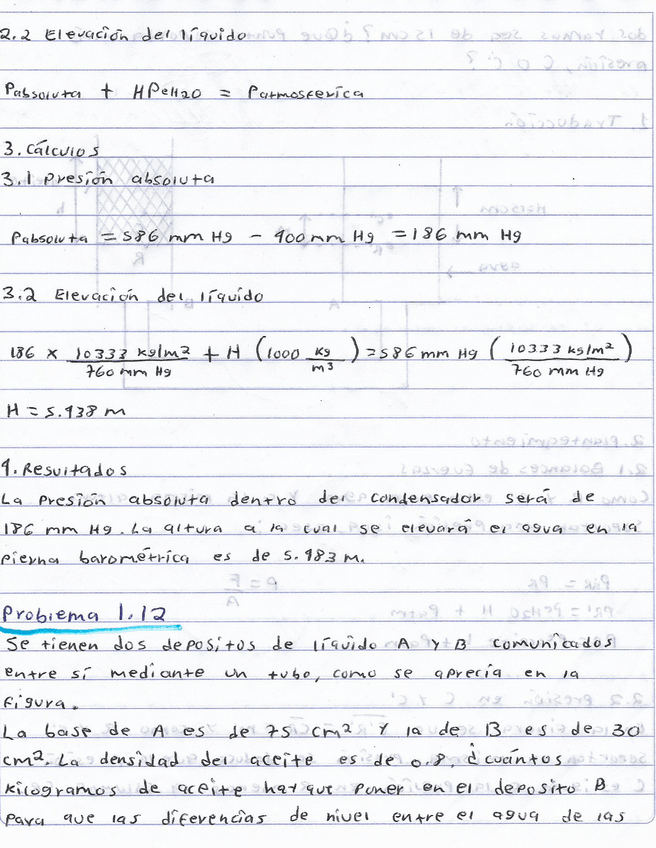 2.2 Elevación del líquido
Pabsoluta + HPeH2O = Patmosferica
3. Cálculos
3.1 Presión absoluta
Pabsoluta = 586 mm Hg - 400 mm Hg = 186 mm Hg
3.2 Elevación del líquido
186 x 10333 kg/m2 / 760 mm Hg + H (1000 kg/m3) = 586 mm Hg (10333 kg/m2 / 760 mm Hg)
H = 5.438 m
4. Resultados
La presión absoluta dentro del condensador será de
186 mm Hg. La altura a la cual se elevará el agua en la
pierna barométrica es de 5.483 m.
Problema 1.12
Se tienen dos depositos de líquido A y B comunicados
entre sí mediante un tubo, como se aprecia en la
figura.
La base de A es de 75 cm2 y la de B es de 30
cm2. La densidad del aceite es de 0.8, ¿cuántos
kilogramos de aceite hay que poner en el deposito B
para que las diferencias de nivel entre el agua de las